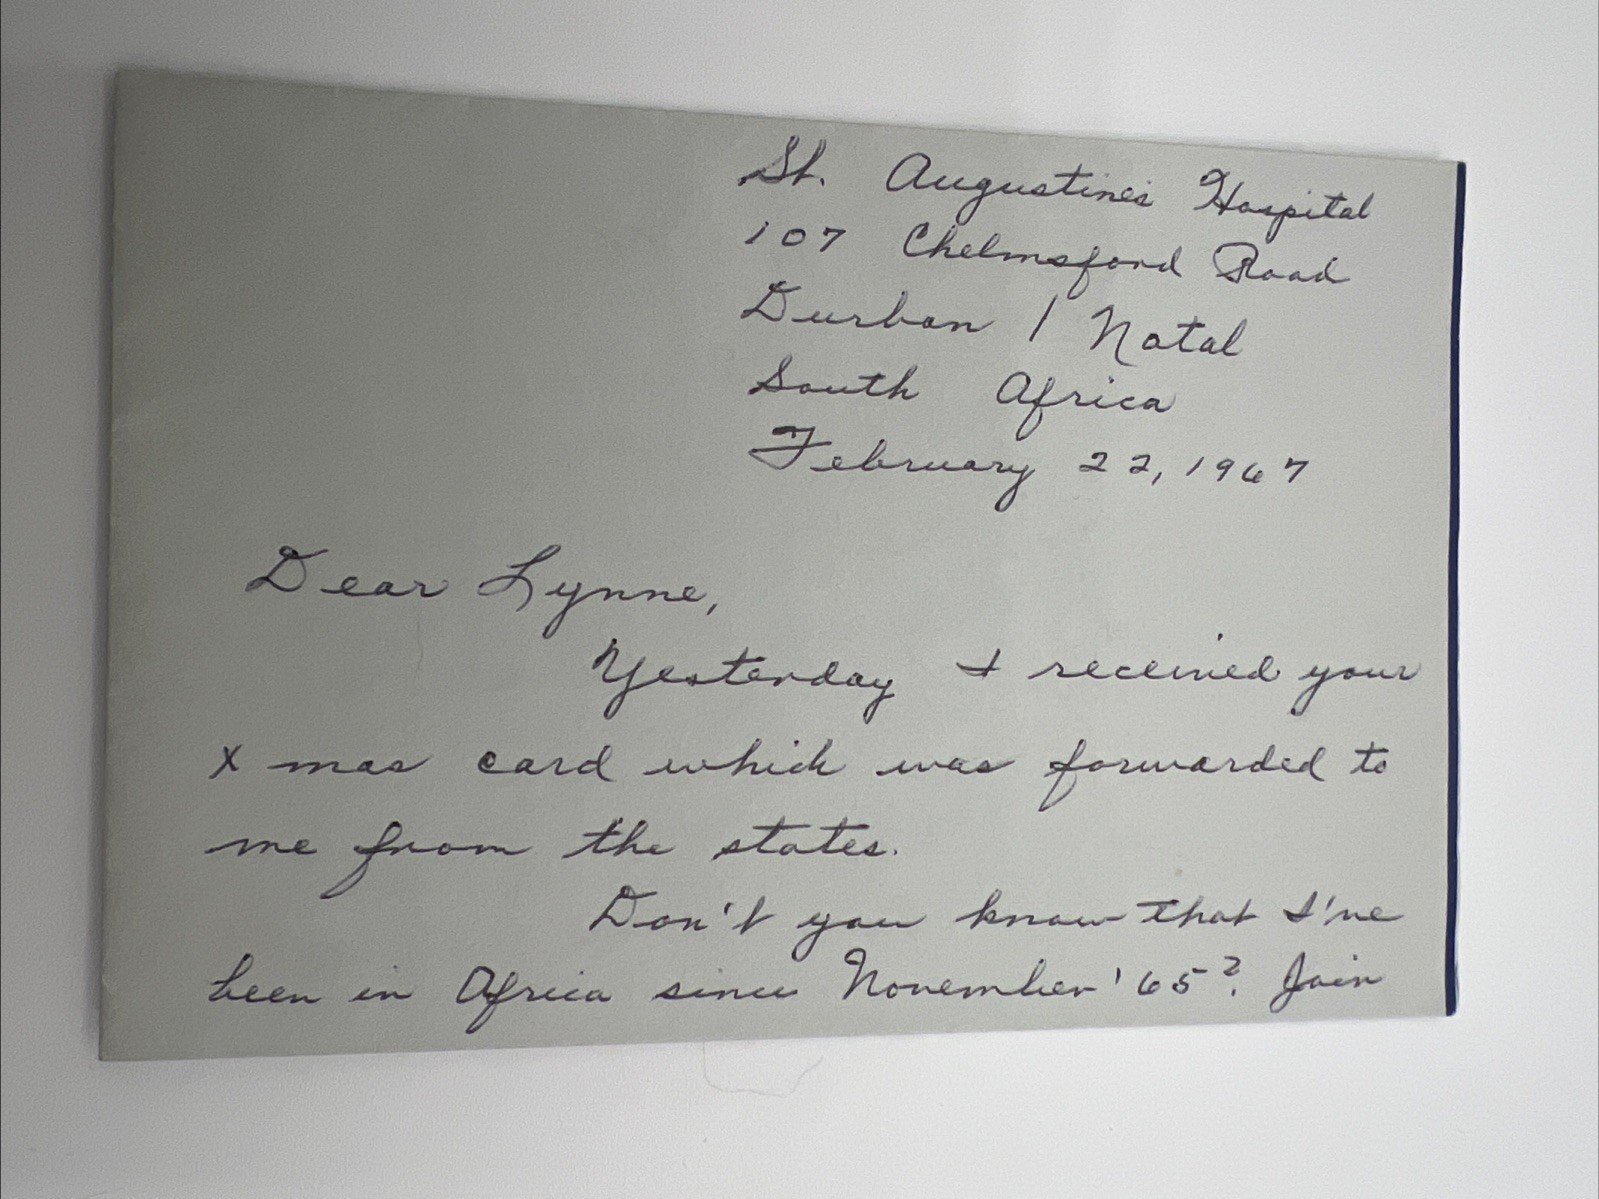 St. Augustines Hospital
107 Chelmsford Road
Durban / Natal
South Africa
February 22, 1967
Dear Lynne,
Yesterday I received your
X mas card which was forwarded to
me from the states.
Don't you know that I've
been in Africa since November '65? Join